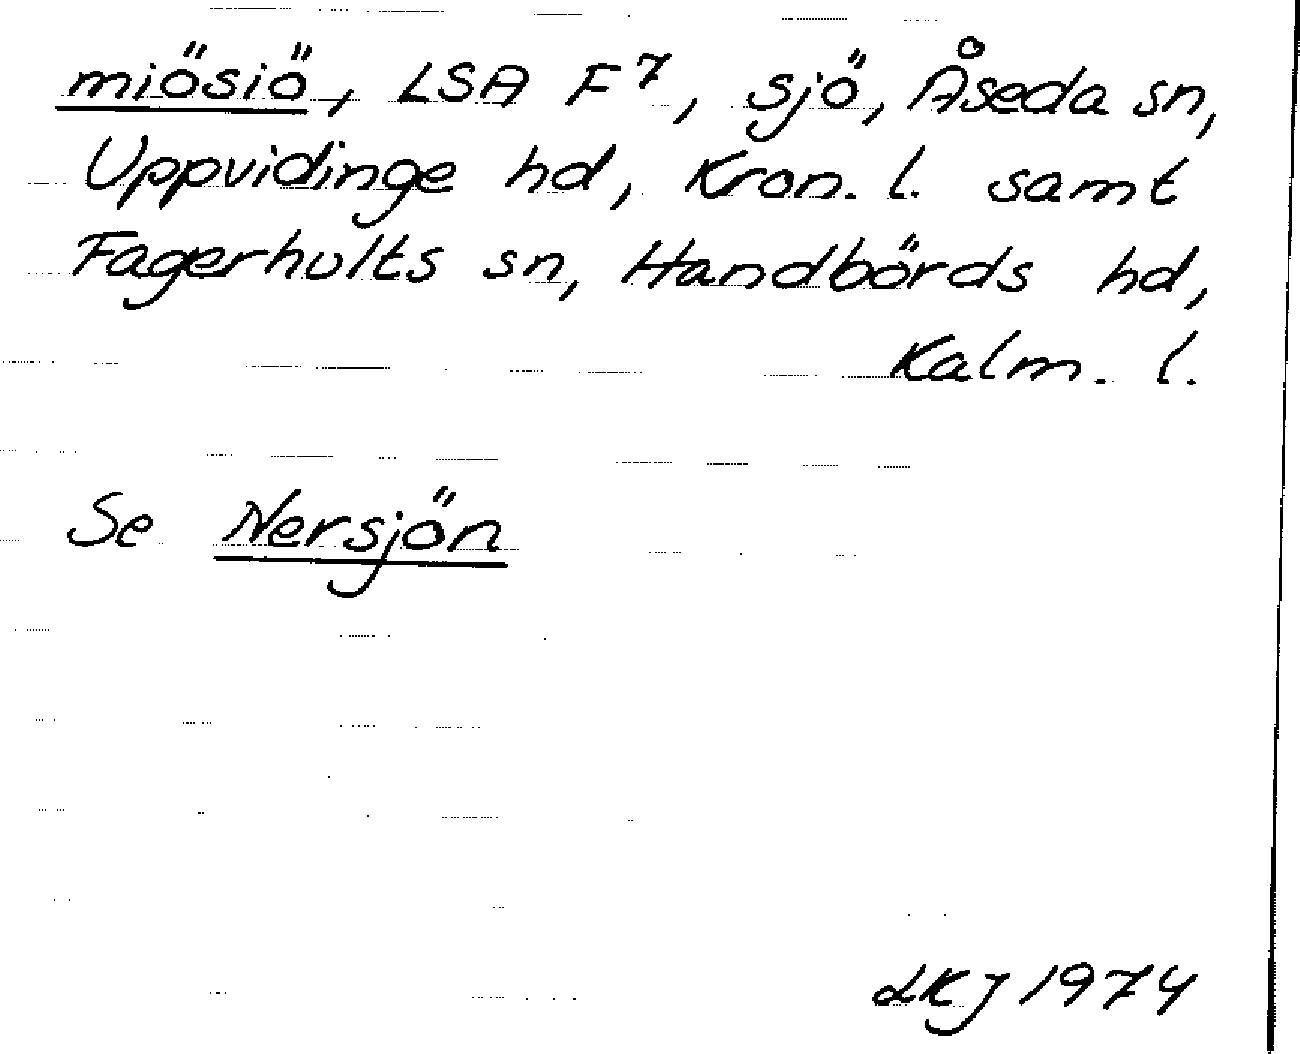 miösiö, LSA F7, sjö, Åseda sn,
Uppvidinge hd, Kron. l. samt
Fagerhults sn, Handbörds hd,
Kalm. l.
Se Nersjön
LKJ 1974